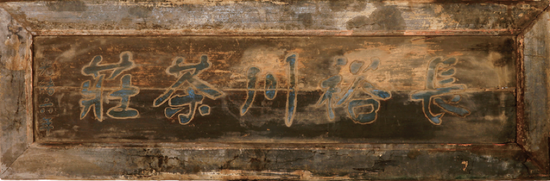 長裕川茶莊